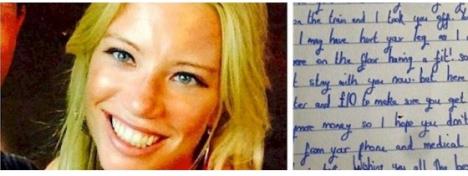 on the train and I took you off
I may have hurt your leg as I
were on the floor having a fit! so
t stay with you now. but here
ter and £10 to make sure you get
more money so I hope you don't
from your phone and medical
Wishing you all the be